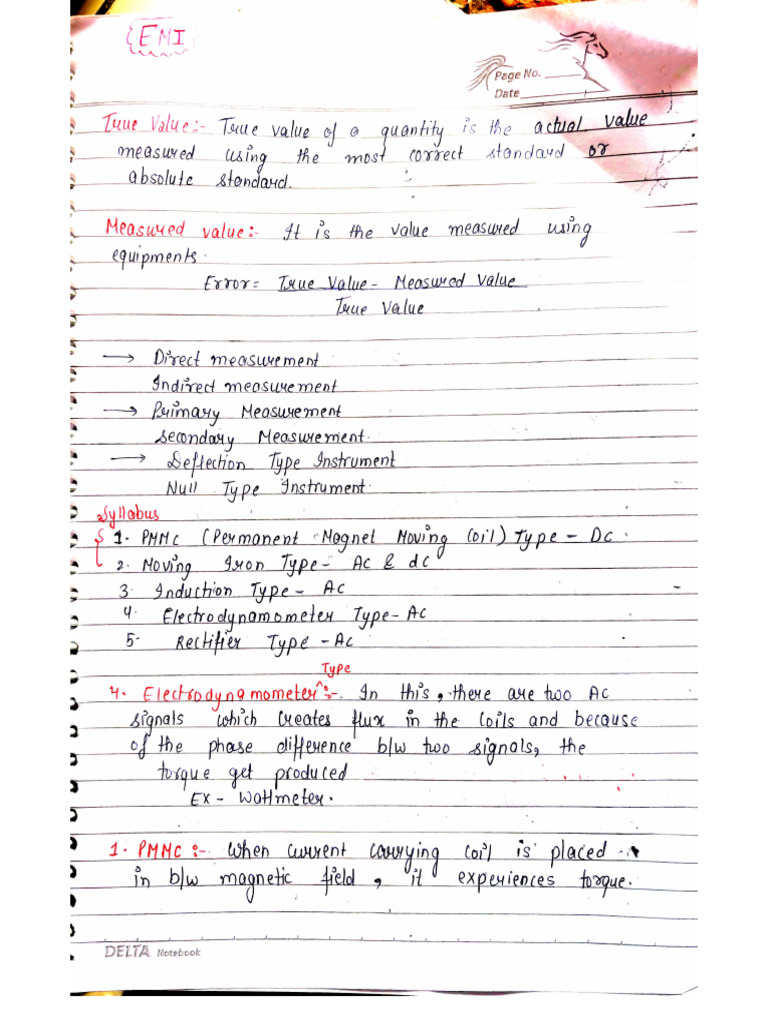 EMI
Page No.
Date
True Value:- True value of a quantity is the actual value
measured using the most correct standard or
absolute standard.
Measured value:- It is the value measured using
equipments.
Error = True Value - Measured Value
True Value
→ Direct measurement
Indirect measurement
→ Primary Measurement
Secondary Measurement.
→ Deflection Type Instrument
Null Type Instrument.
Syllabus
1. PMMC (Permanent Magnet Moving Coil) Type - DC.
2. Moving Iron Type - AC & dC
3. Induction Type - AC
4. Electrodynamometer Type - AC
5. Rectifier Type - AC
Type
4. Electrodynamometer^:-. In this, there are two AC
signals which creates flux in the coils and because
of the phase difference b/w two signals, the
torque get produced
Ex - Wattmeter.
1. PMMC:- When current carrying coil is placed
in b/w magnetic field, it experiences torque.
DELTA Notebook